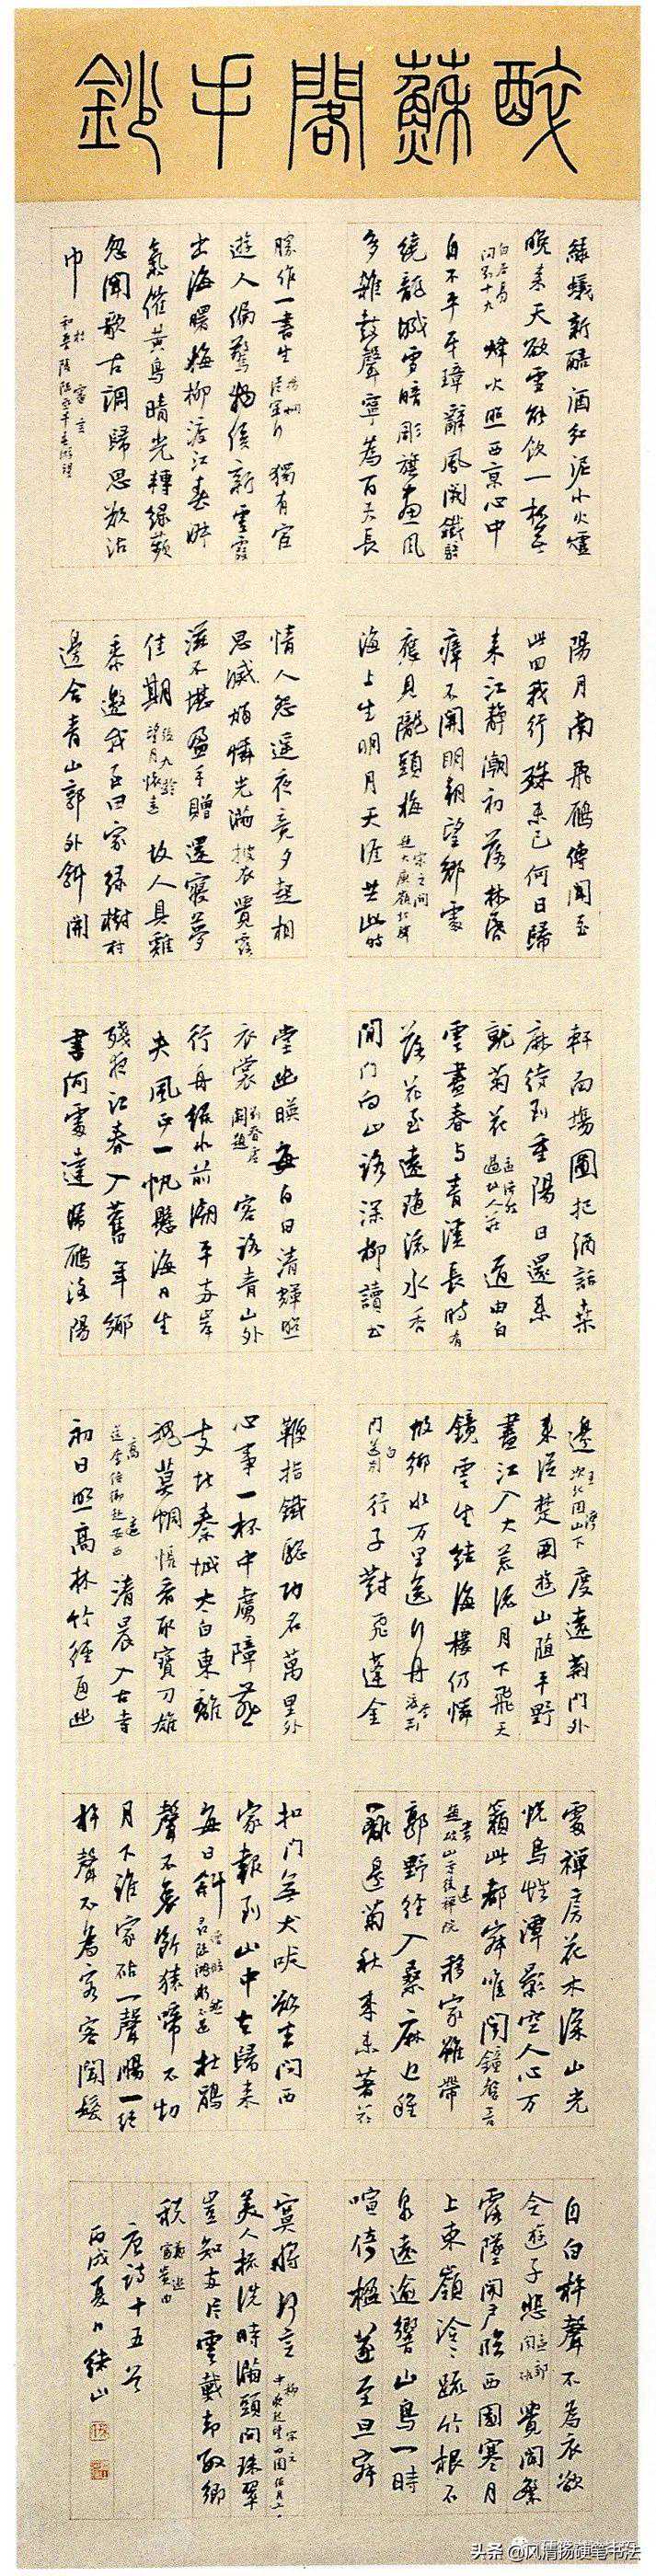 醉蘇閣手鈔
綠蟻新醅酒紅泥小火爐
晚來天欲雪能飲一杯無
白居易問劉十九 烽火照西京心中
自不平牙璋辭鳳闕鐵騎
繞龍城雪暗彫旗畫風
多雜鼓聲寧為百夫長
勝作一書生 楊炯從軍行 獨有宦
遊人偏驚物候新雲霞
出海曙梅柳渡江春淑
氣催黃鳥晴光轉綠蘋
忽聞歌古調歸思欲沾
巾 杜審言和晉陵陸丞早春游望
陽月南飛雁傳聞至
此回我行殊未已何日歸
來江靜潮初落林昏
瘴不開明朝望鄉處
應見隴頭梅 宋之問題大庾嶺北驛
海上生明月天涯共此時
情人怨遥夜竟夕起相
思滅燭憐光滿披衣覺露
滋不堪盈手贈還寢夢
佳期 張九齡望月懷遠 故人具雞
黍邀我至田家綠樹村
邊合青山郭外斜開
軒面場圃把酒話桑
麻待到重陽日還來
就菊花 孟浩然過故人莊 道由白
雲盡春與青溪長時有
落花至遠隨流水香
閒門向山路深柳讀書
堂幽映每白日清輝照
衣裳 劉昚虛闕題 客路青山外
行舟綠水前潮平兩岸
失風正一帆懸海日生
殘夜江春入舊年鄉
書何處達歸雁洛陽
邊 王灣次北固山下 度遠荊門外
來從楚國遊山隨平野
盡江入大荒流月下飛天
鏡雲生結海樓仍憐
故鄉水万里送行舟 李白渡荊
門送別 行子對飛蓬金
鞭指鐵驄功名萬里外
心事一杯中虜障燕
支北秦城太白東離
魂莫惆悵看取寶刀雄
高適送李侍御赴安西 清晨入古寺
初日照高林竹徑通幽
處禪房花木深山光
悅鳥性潭影空人心万
籟此都寂唯聞鐘磬音
常建題破山寺後禪院 移家雖帶
郭野徑入桑麻近種
籬邊菊秋來未著花
扣門無犬吠欲去問西
家報到山中去歸來
每日斜 僧皎然尋陸鴻漸不遇 杜鵑
聲不哀斷猿啼不切
月下誰家砧一聲腸一絕
杵聲不為客客聞髮
自白杵聲不為衣欲
令遊子悲 孟郊聞砧 覺聞繁
露墜開戶臨西園寒月
上東嶺泠泠疏竹根石
泉遠逾響山鳥一時
喧倚楹遂至旦寂
寞將何言 柳宗元中夜起望西園值月上
美人梳洗時滿頭間珠翠
豈知兩片雲戴却數鄉
稅 鄭遨富貴曲
唐詩十五首
丙戌夏日
头条 @风清扬硬笔书法